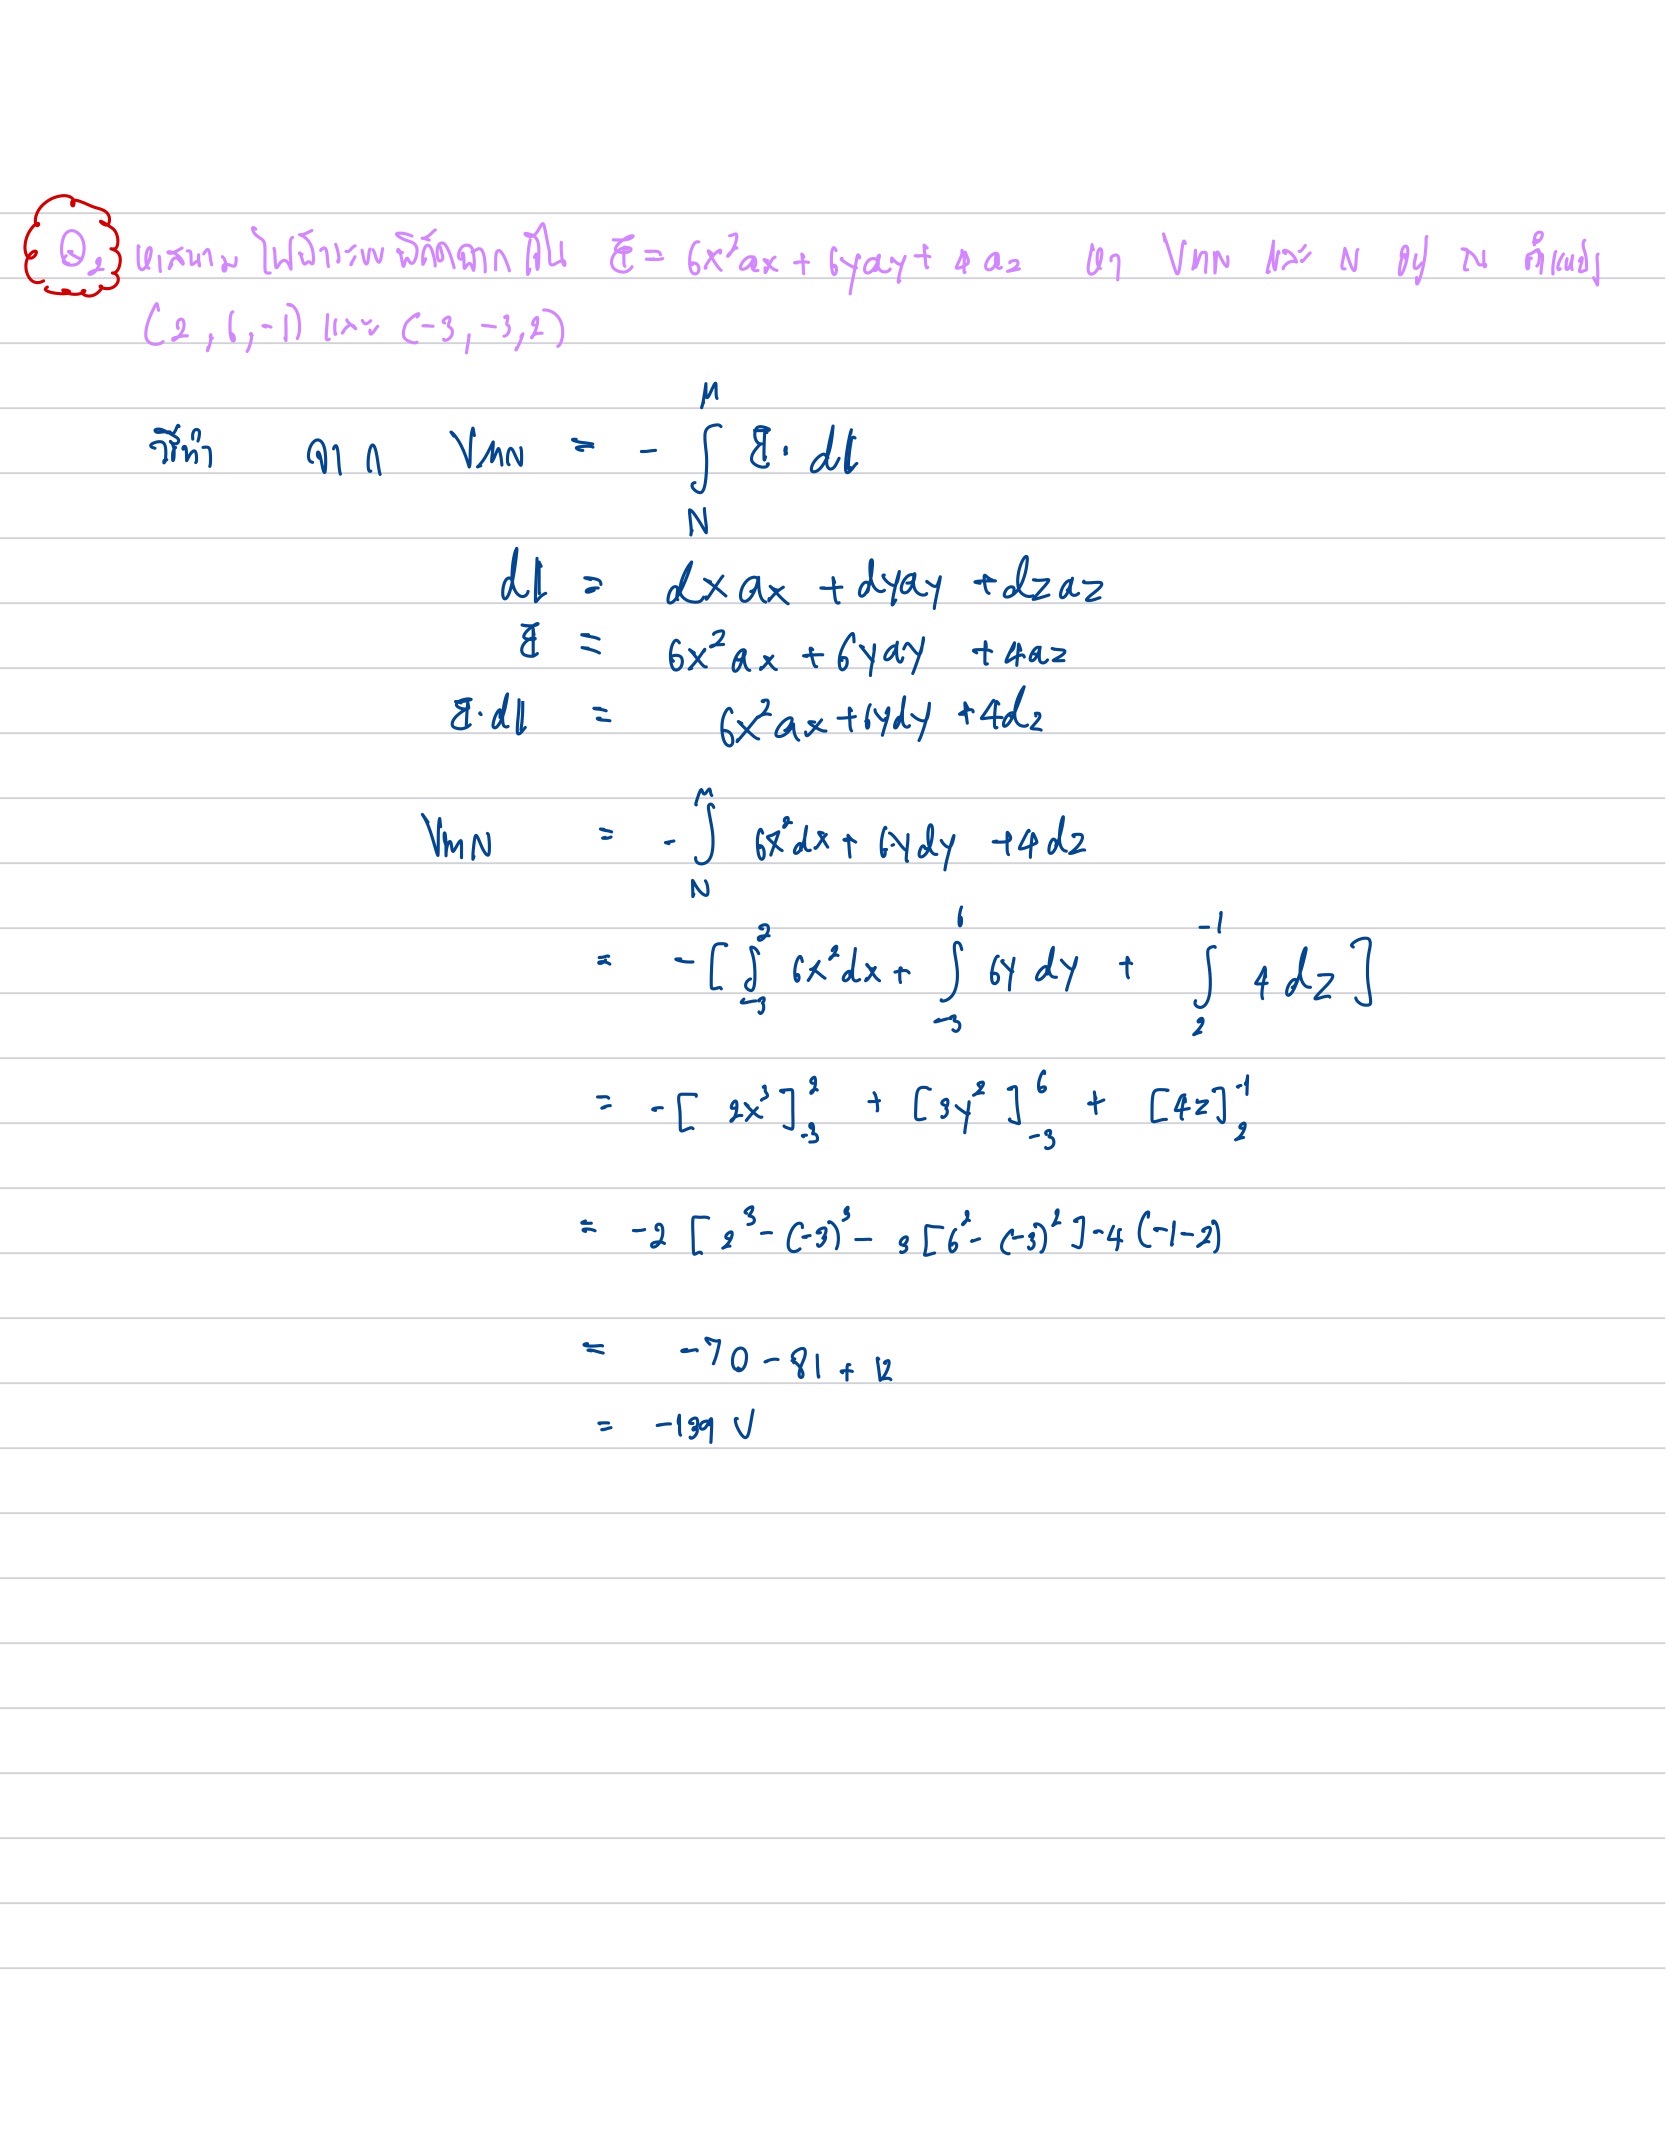 Q₂ หาสนามไฟฟ้าระบบพิกัดฉากเป็น E = 6x²ax + 6yay + 4az หา VMN และ N อยู่ ณ ตำแหน่ง
(2, 6, -1) และ (-3, -3, 2)
วิธีทำ จาก VMN = - ∫_N^M E · dL
dL = dxax + dyay + dzaz
E = 6x²ax + 6yay + 4az
E·dL = 6x²ax + 6ydy + 4dz
VMN = - ∫_N^M 6x²dx + 6ydy + 4dz
= - [ ∫_-3^2 6x²dx + ∫_-3^6 6y dy + ∫_2^-1 4 dz ]
= - [ 2x³ ]_-3^2 + [ 3y² ]_-3^6 + [4z]_2^-1
= -2 [ 2³ - (-3)³ - 3 [ 6² - (-3)² ] - 4 (-1-2)
= -70 - 81 + 12
= -139 V